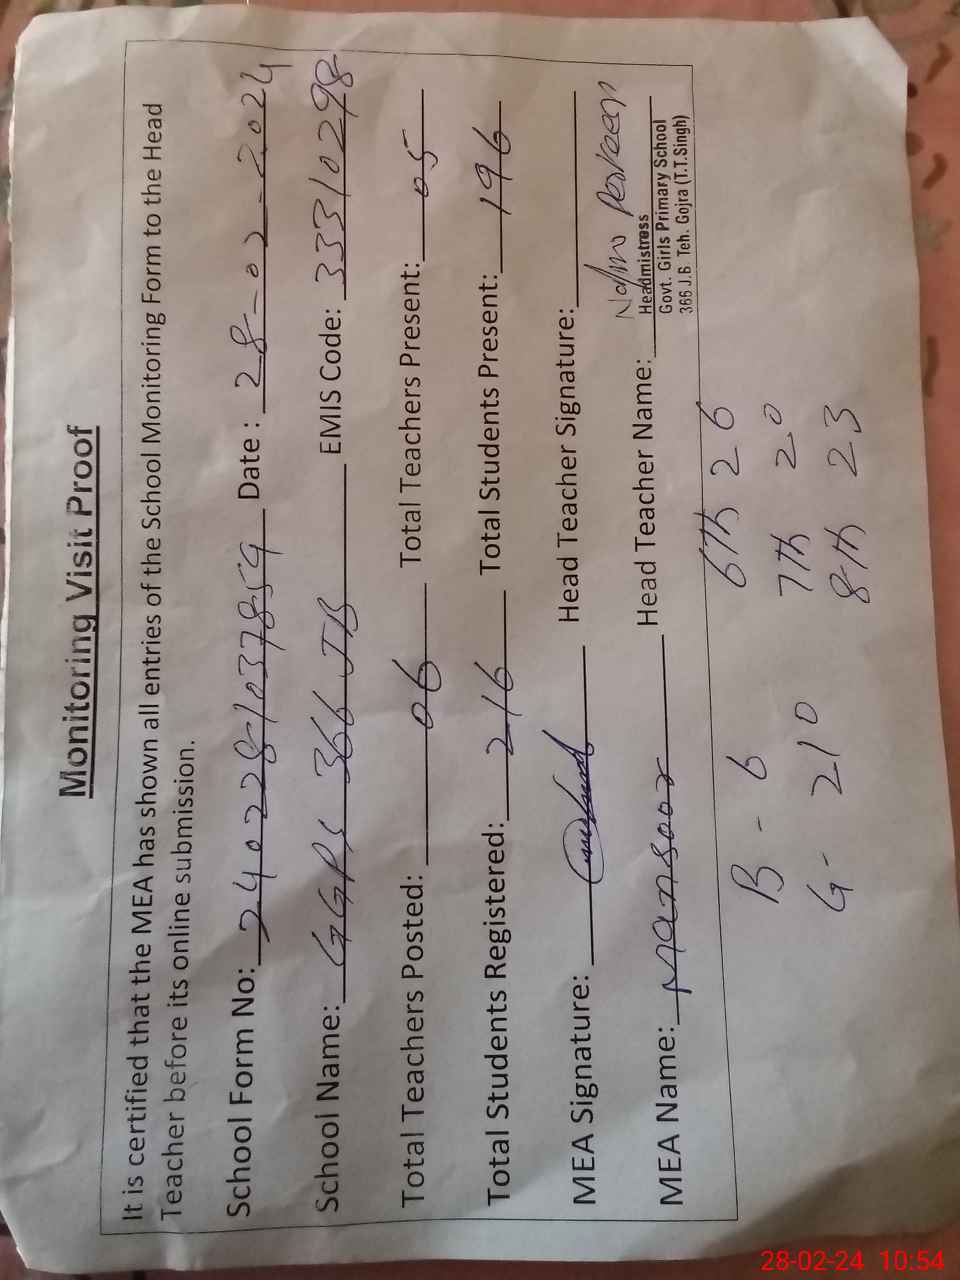 Monitoring Visit Proof
It is certified that the MEA has shown all entries of the School Monitoring Form to the Head
Teacher before its online submission.
School Form No: 240228-1037859 Date : 28-02-2024
School Name: GGPS 366 JB EMIS Code: 33310298
Total Teachers Posted: 06 Total Teachers Present: 05
Total Students Registered: 216 Total Students Present: 196
MEA Signature: Head Teacher Signature:
MEA Name: Mansoor Head Teacher Name: Parveen
Headmistress
Govt. Girls Primary School
366 J.B Teh. Gojra (T.T.Singh)
B - 6 6th 26
G - 210 7th 20
8th 23
28-02-24 10:54